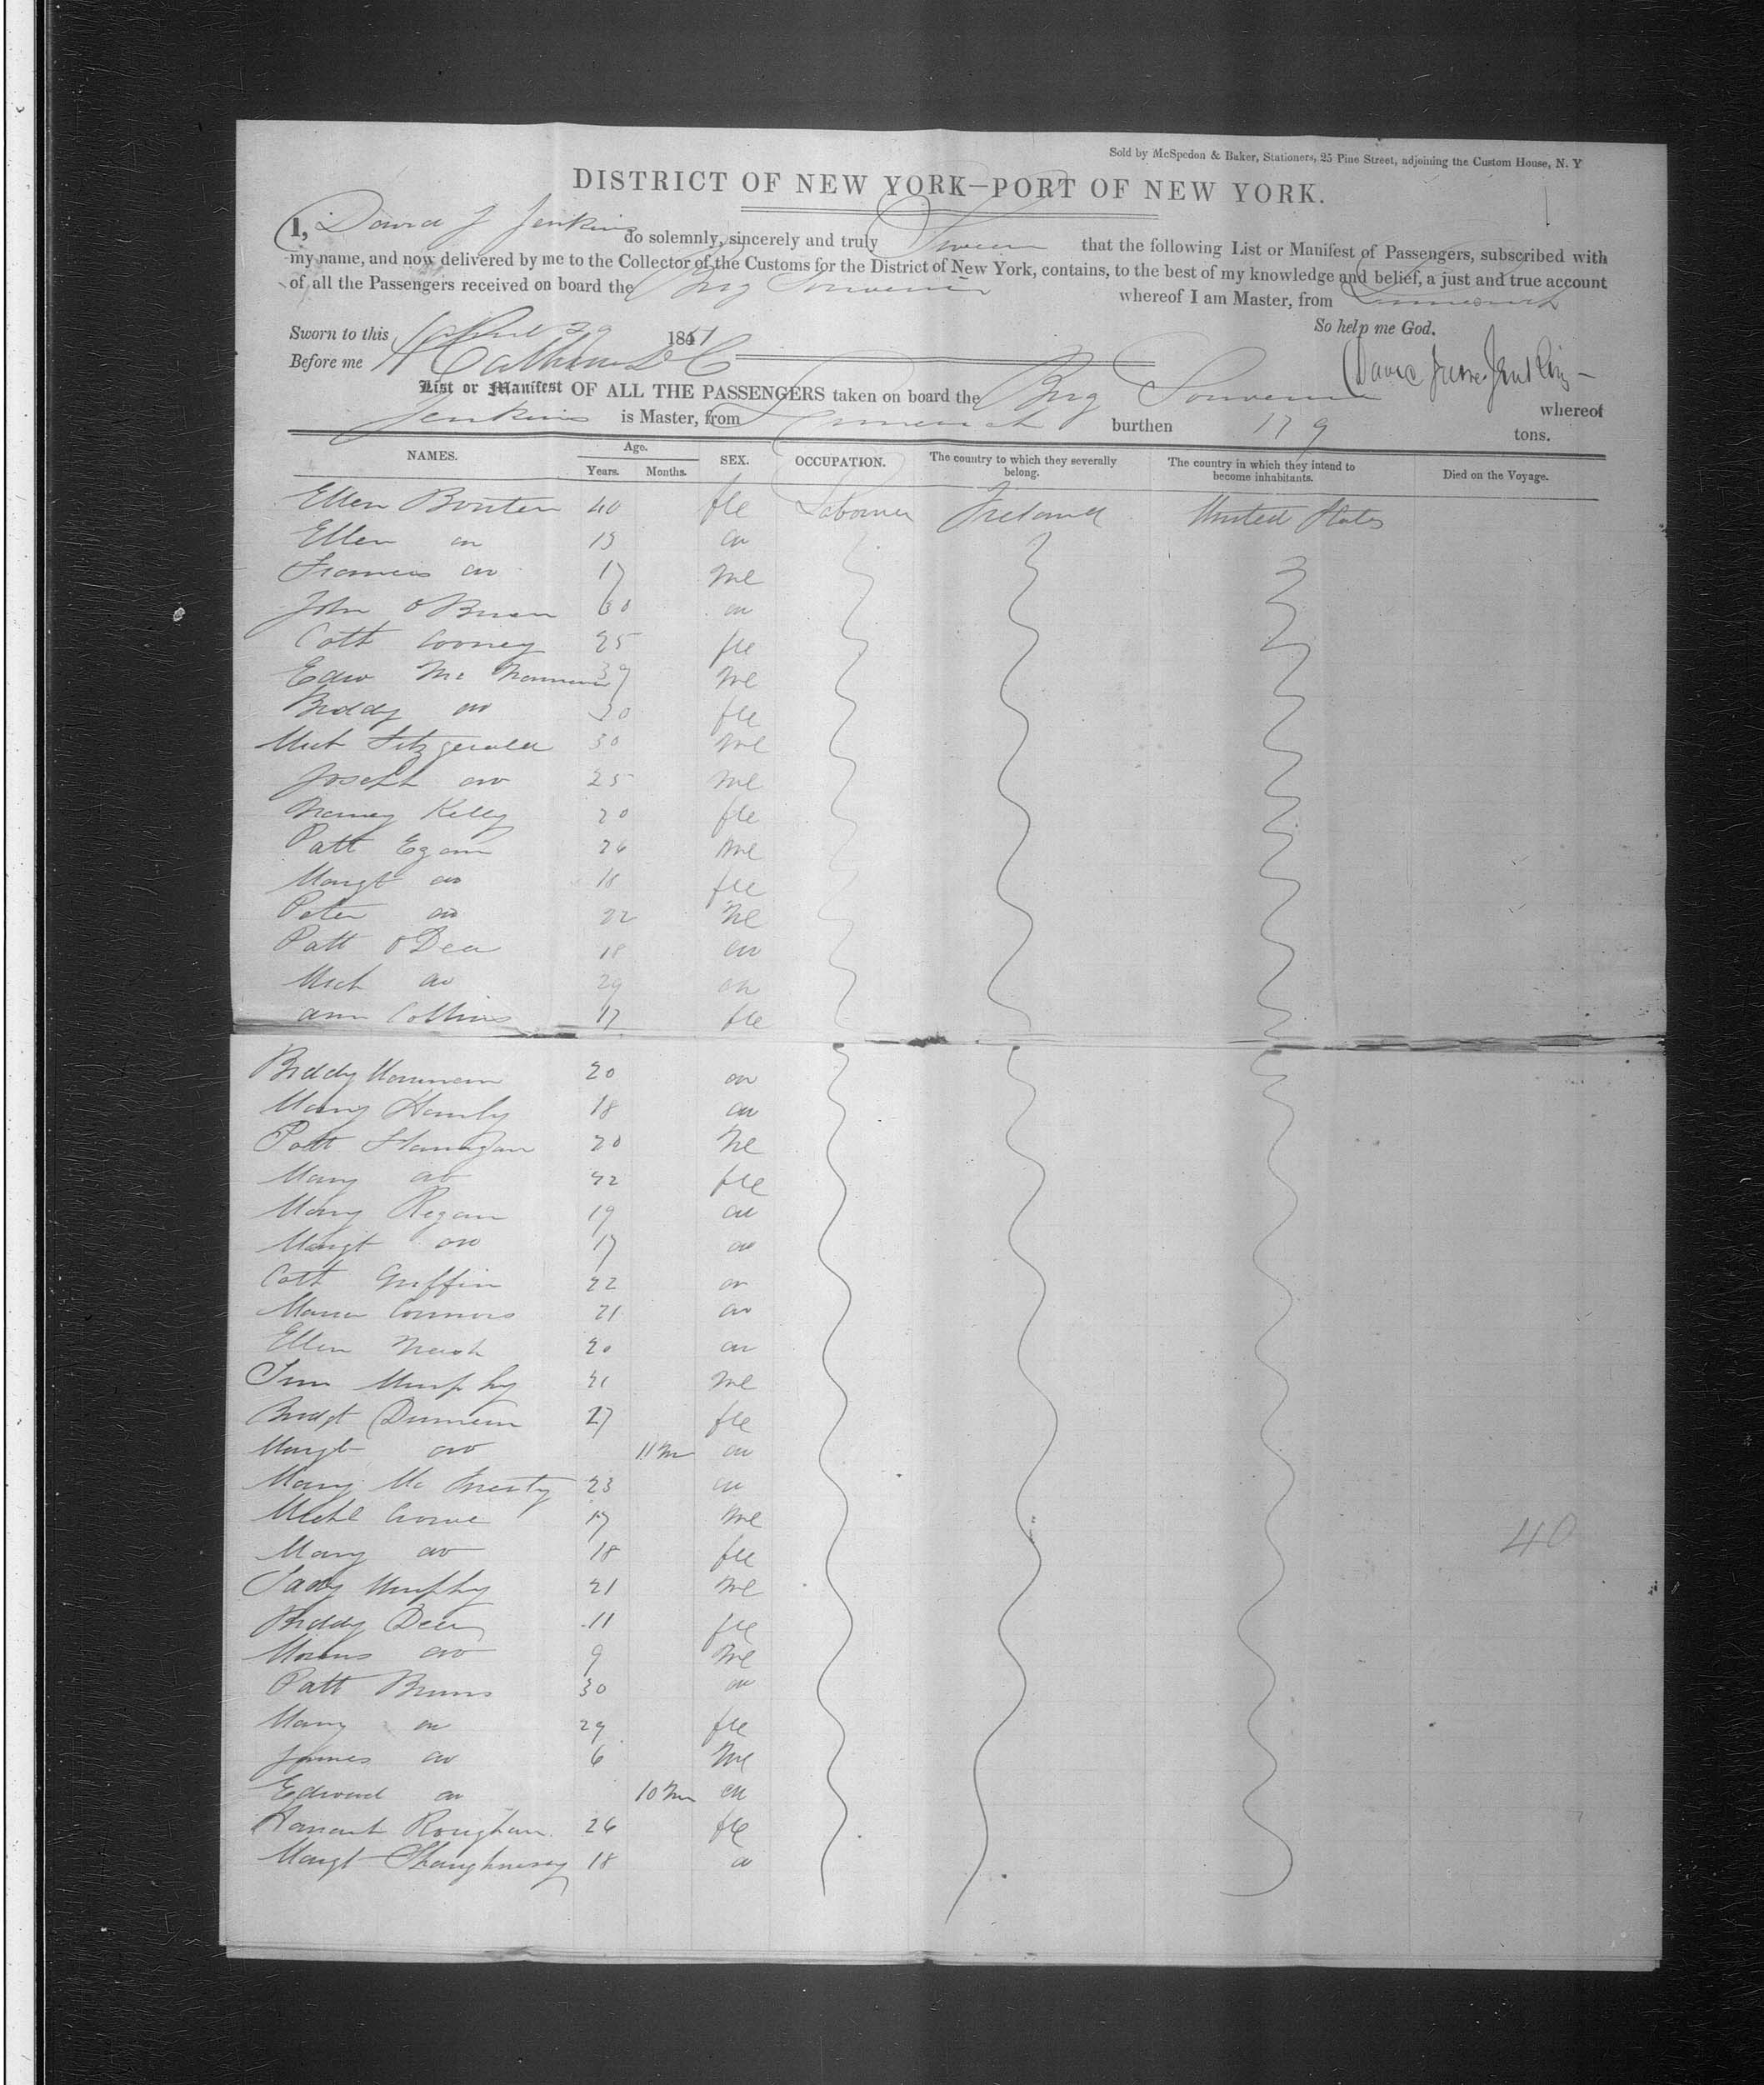 Sold by McSpedon & Baker, Stationers, 25 Pine Street, adjoining the Custom House, N. Y
DISTRICT OF NEW YORK—PORT OF NEW YORK.
I, David J Jenkins do solemnly, sincerely and truly Swear that the following List or Manifest of Passengers, subscribed with
my name, and now delivered by me to the Collector of the Customs for the District of New York, contains, to the best of my knowledge and belief, a just and true account
of all the Passengers received on board the Brig Souvenir whereof I am Master, from Limerick
So help me God.
Sworn to this April 29 1851
Before me
David Jenkins
List or Manifest OF ALL THE PASSENGERS taken on board the Brig Souvenir whereof
Jenkins is Master, from Limerick burthen 179 tons.
NAMES. Age. Years. Months. SEX. OCCUPATION. The country to which they severally belong. The country in which they intend to become inhabitants. Died on the Voyage.
Ellen 40 fle Labourer Ireland United States
Ellen do 19 do
Francis do 17 Me
John O'Brien 30 do
Cath Cooney 25 fle
Edw Mc 37 Me
Biddy do 30 fle
Mich Fitzgerald 30 Me
Joseph do 25 Me
Nancy Kelly 20 fle
Patt Egan 26 Me
Margt do 18 fle
Peter do 22 Me
Patt O'Dea 18 do
Mich do 29 do
Ann Collins 17 fle
Biddy 20 do
Mary Hanly 18 do
Patt Flanagan 20 Me
Mary do 22 fle
Mary Regan 19 do
Margt do 17 do
Cath Griffin 22 do
Maria Connors 21 do
Ellen Nash 20 do
Tim Murphy 21 Me
Bridgt 27 fle
Margt do 11 m do
Mary Mc 23 do
Michl Crowe 17 Me
Mary do 18 fle
Murphy 21 Me
Biddy 11 fle
do 9 Me
Patt Burns 30 do
Mary do 29 fle
James do 6 Me
Edward do 10 m do
Hanah Roughan 26 fle
Margt Shaughnessy 18 do
40